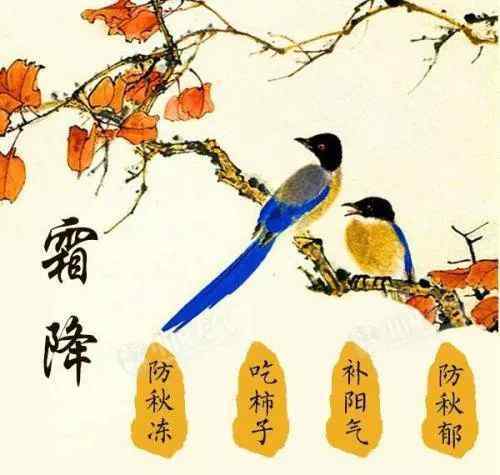 霜降
防秋冻
吃柿子
补阳气
防秋郁